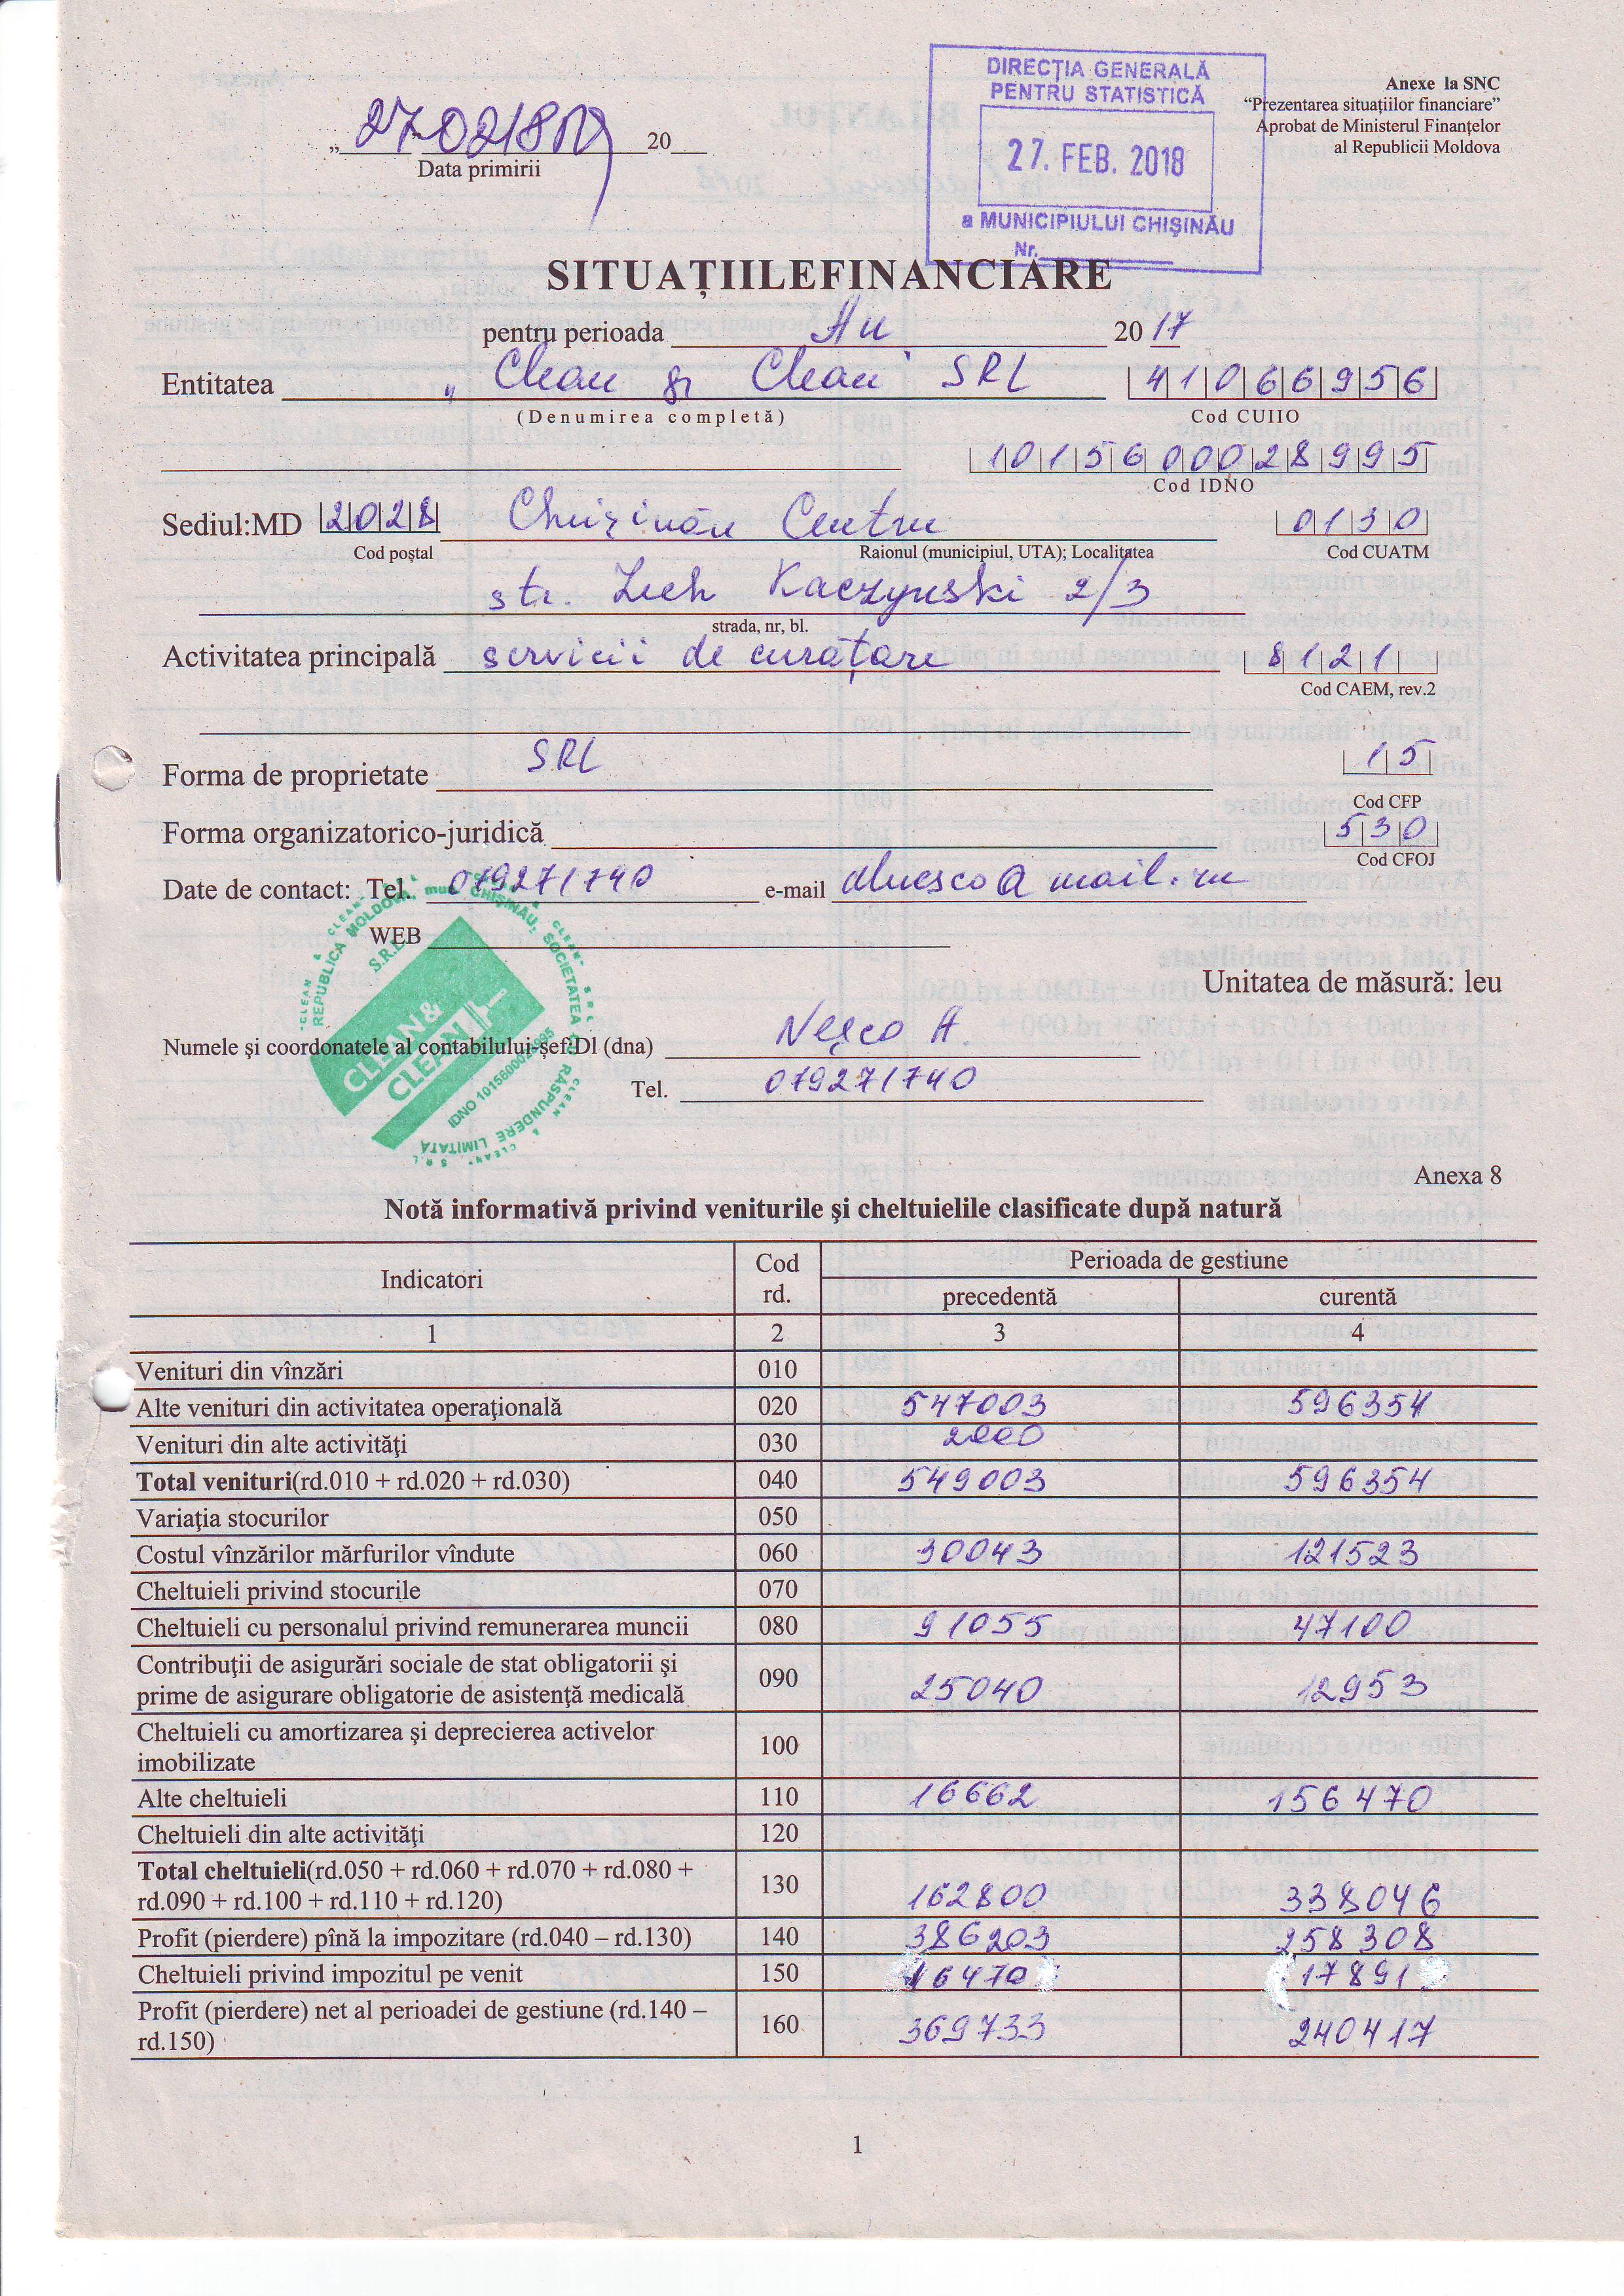 DIRECŢIA GENERALĂ
PENTRU STATISTICĂ
27. FEB. 2018
a MUNICIPIULUI CHIŞINĂU
Nr.
Anexe la SNC
“Prezentarea situațiilor financiare”
Aprobat de Ministerul Finanțelor
al Republicii Moldova
„ 270218 20
Data primirii
SITUAȚIILEFINANCIARE
pentru perioada An 2017
Entitatea „Clean și Clean" SRL 41066956
(Denumirea completă) Cod CUIIO
1015600028995
Cod IDNO
Sediul:MD 2028 Chișinău Centru 0130
Cod poștal Raionul (municipiul, UTA); Localitatea Cod CUATM
str. Lech Kaczynski 2/3
strada, nr, bl.
Activitatea principală servicii de curățare 8121
Cod CAEM, rev.2
Forma de proprietate SRL 15
Cod CFP
Forma organizatorico-juridică 530
Cod CFOJ
Date de contact: Tel. 079271740 e-mail @mail.ru
WEB
Unitatea de măsură: leu
Numele şi coordonatele al contabilului-șef:Dl (dna) Neșco A.
Tel. 079271740
REPUBLICA MOLDOVA, mun. CHIŞINĂU, SOCIETATEA CU RĂSPUNDERE LIMITATĂ
S.R.L.
CLEAN&
CLEAN
IDNO 1015600028995
Anexa 8
Notă informativă privind veniturile şi cheltuielile clasificate după natură
Indicatori Cod rd. Perioada de gestiune
precedentă curentă
1 2 3 4
Venituri din vînzări 010
Alte venituri din activitatea operaţională 020 547003 596354
Venituri din alte activităţi 030 2000
Total venituri(rd.010 + rd.020 + rd.030) 040 549003 596354
Variaţia stocurilor 050
Costul vînzărilor mărfurilor vîndute 060 30043 121523
Cheltuieli privind stocurile 070
Cheltuieli cu personalul privind remunerarea muncii 080 91055 47100
Contribuţii de asigurări sociale de stat obligatorii şi
prime de asigurare obligatorie de asistenţă medicală 090 25040 12953
Cheltuieli cu amortizarea şi deprecierea activelor
imobilizate 100
Alte cheltuieli 110 16662 156470
Cheltuieli din alte activităţi 120
Total cheltuieli(rd.050 + rd.060 + rd.070 + rd.080 +
rd.090 + rd.100 + rd.110 + rd.120) 130 162800 338046
Profit (pierdere) pînă la impozitare (rd.040 – rd.130) 140 386203 258308
Cheltuieli privind impozitul pe venit 150 16470 17891
Profit (pierdere) net al perioadei de gestiune (rd.140 –
rd.150) 160 369733 240417
1